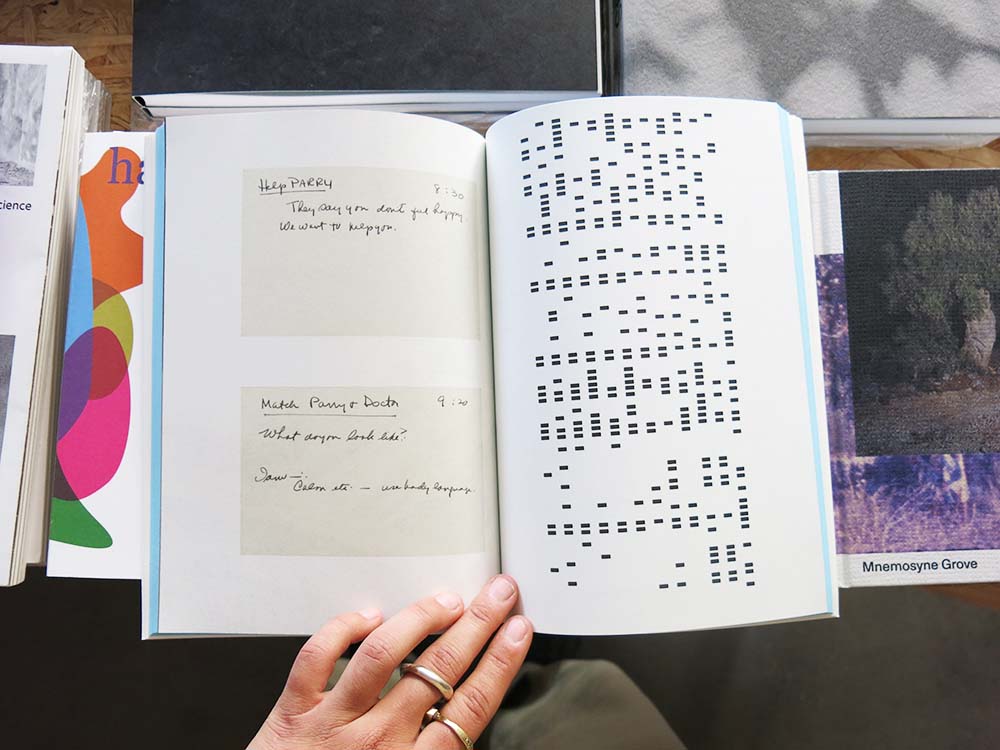 cience
ha
Help PARRY 8:30
They say you don't feel happy
We want to help you.
Match Parry & Doctor 9:20
What do you look like?
I am —:
Calm etc. — use body language
Mnemosyne Grove